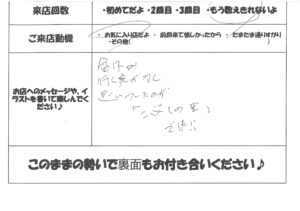 来店回数 ・初めてだよ ・2回目 ・3回目 ・もう数えきれないよ
ご来店動機 ・お気に入り店だよ ・前回来て愉しかったから ・たまたま通りすがり
・その他( )
お店へのメッセージや、イラストを書いて楽しんでください♪
行く案がなし
思いついたのが
です!!
このままの勢いで裏面もお付き合いください♪